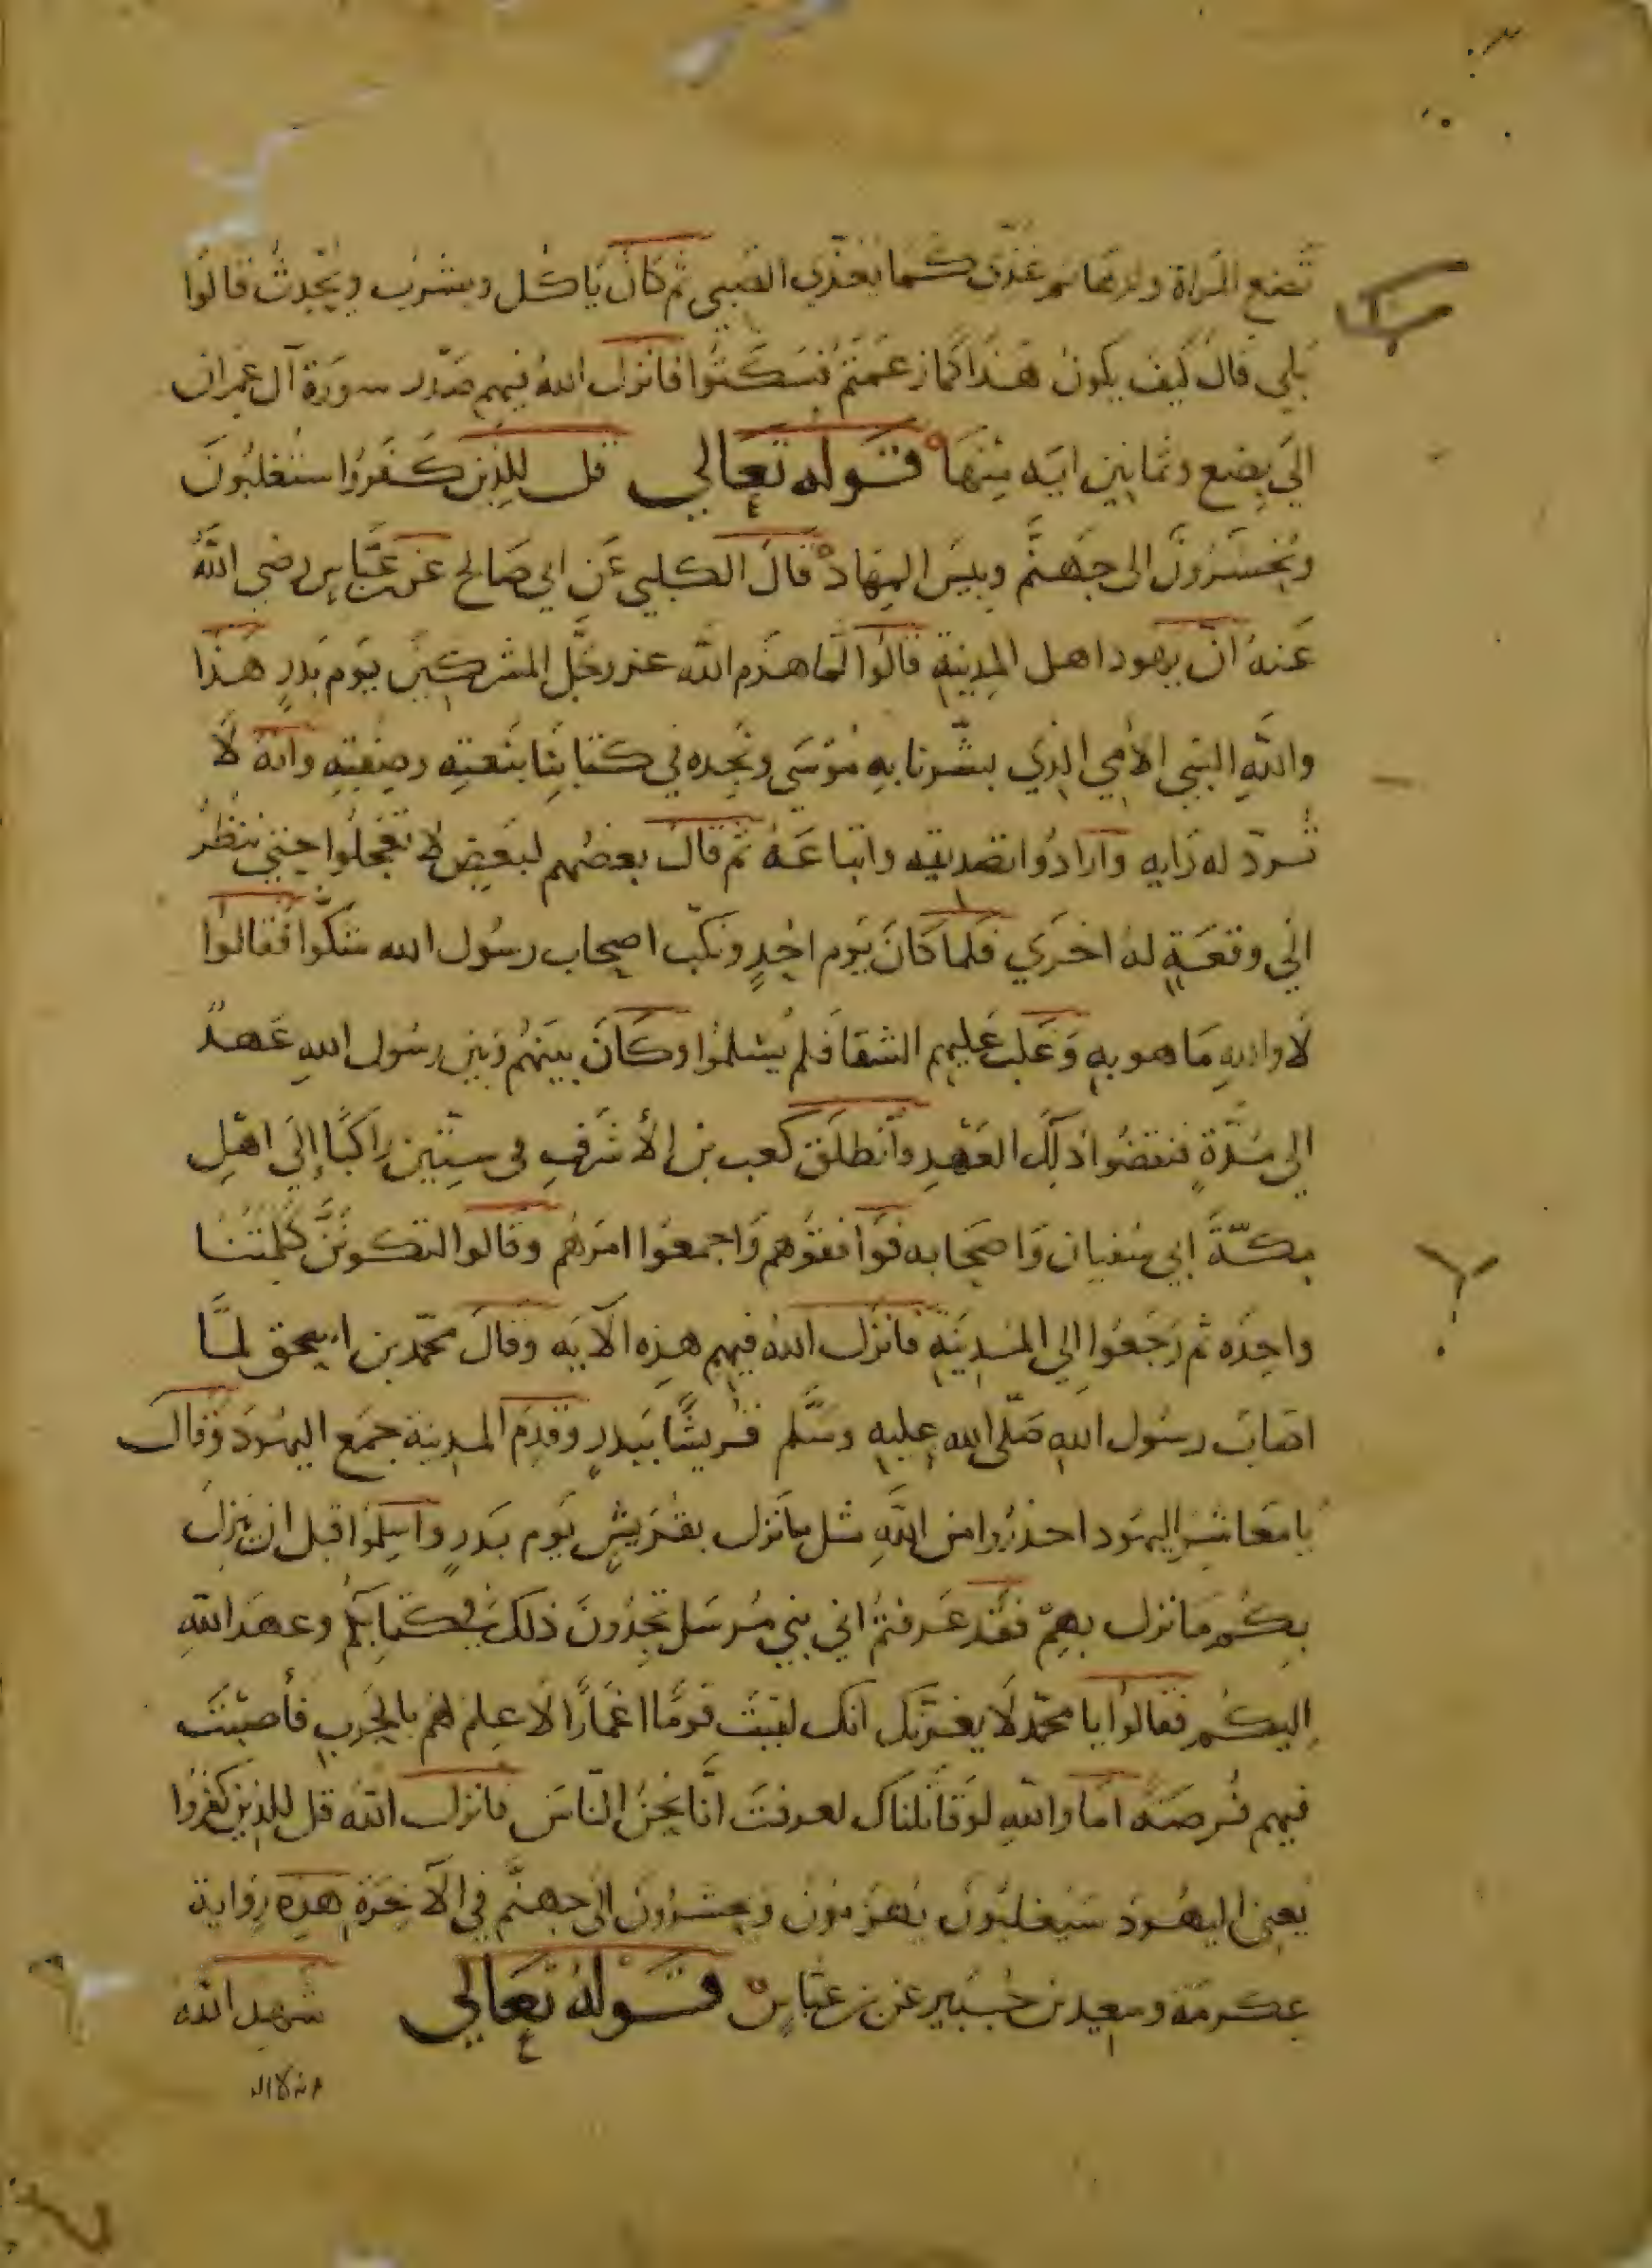 تضع المراة ولدها ثم غذي كما يغذي الصبي ثم كان ياكل ويشرب ويحدث قالوا
بلي قال كيف يكون هذا كما زعمتم فسكتوا فانزل الله فيهم صدر سورة آل عمران
الي بضع وثمانين ايه منها قوله تعالي قل للذين كفروا ستغلبون
وتحشرون الى جهنم وبيس المهاد قال الكلبي عن ابي صالح عن عباس رضي الله
عنه ان يهود اهل المدينة قالوا لما هزم الله عز وجل المشركين يوم بدر هذا
والله النبي الامي الذي بشرنا به موسى ونجده في كتابنا بنعته وصفته وانه لا
ترد له رايه وارادوا تصديقه واتباعه ثم قال بعضهم لبعض لا تعجلوا حتي ننظر
الي وقعة له اخري فلما كان يوم احد ونكب اصحاب رسول الله شكوا فقالوا
لا والله ما هو به وغلب عليهم الشقا فلم يسلموا وكان بينهم وبين رسول الله عهد
الى مدة فنقضوا ذلك العهد وانطلق كعب بن الأشرف في ستين راكبا إلي اهل
مكة ابي سفيان واصحابه فوافقوهم واجمعوا امرهم وقالوا لتكونن كلمتنا
واحده ثم رجعوا الي المدينة فانزل الله فيهم هذه الآيه وقال محمد بن اسحق لما
اصاب رسول الله صلى الله عليه وسلم قريشا ببدر وقدم المدينة جمع اليهود وقال
يا معاشر اليهود احذروا من الله مثل ما نزل بقريش يوم بدر واسلموا قبل ان ينزل
بكم ما نزل بهم فقد عرفتم اني نبي مرسل تجدون ذلك في كتابكم وعهد الله
اليكم فقالوا يا محمد لا يغرنك انك لقيت قوما اغمارا لا علم لهم بالحرب فأصبت
فيهم فرصه اما والله لو قاتلناك لعرفت انا نحن الناس فانزل الله قل للذين كفروا
يعني اليهود سيغلبون يهزمون ويحشرون الى جهنم في الآخرة هذه رواية
عكرمة وسعيد بن جبير عن بن عباس قوله تعالي شهد الله
انه لا اله